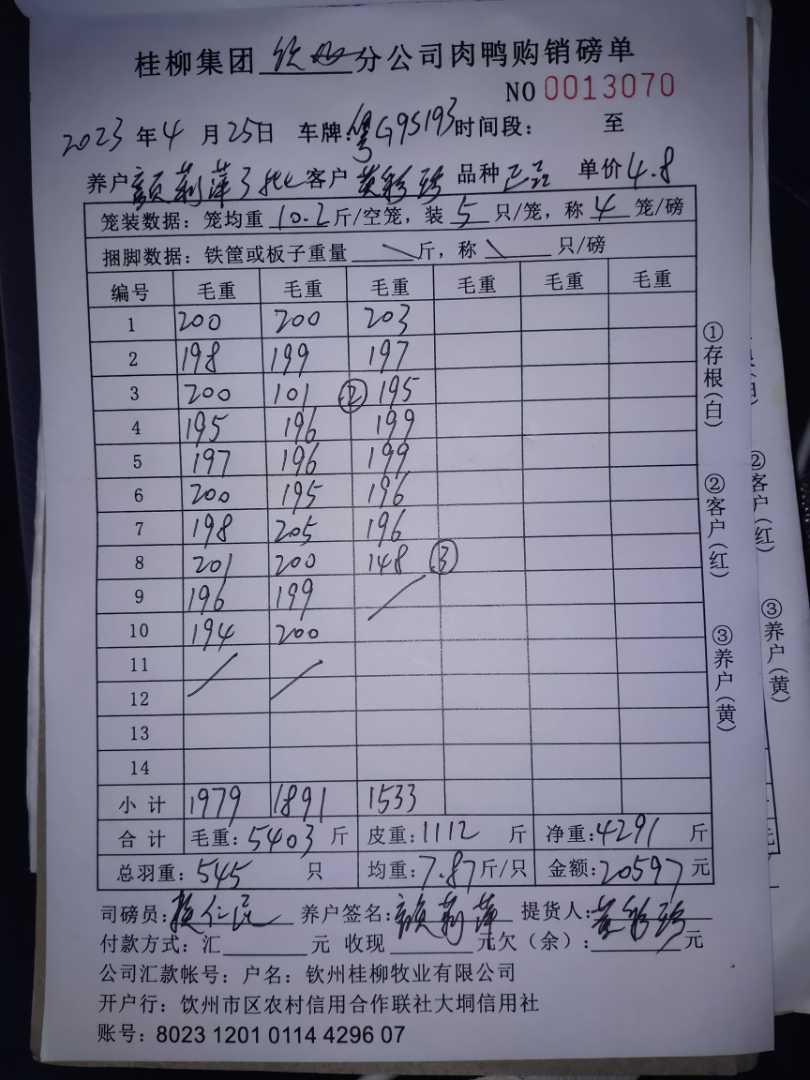 桂柳集团 钦州 分公司肉鸭购销磅单
NO 0013070
2023 年 4 月 25 日 车牌：粤G95193 时间段： 至
养户 颜莉萍3批 客户 黄彩珍 品种 正品 单价 4.8
笼装数据：笼均重 10.2 斤/空笼，装 5 只/笼，称 4 笼/磅
捆脚数据：铁筐或板子重量 \ 斤，称 \ 只/磅
编号 毛重 毛重 毛重 毛重 毛重 毛重
1 200 200 203
2 198 199 197
3 200 101 ② 195
4 195 196 199
5 197 196 199
6 200 195 196
7 198 205 196
8 201 200 148 ③
9 196 199
10 194 200
11
12
13
14
小计 1979 1891 1533
合计 毛重：5403 斤 皮重：1112 斤 净重：4291 斤
总羽重：545 只 均重：7.87 斤/只 金额：20597 元
司磅员： 仁民 养户签名：颜莉萍 提货人：黄彩珍
付款方式：汇 元 收现 元欠（余）： 元
公司汇款帐号：户名：钦州桂柳牧业有限公司
开户行：钦州市区农村信用合作联社大垌信用社
账号：8023 1201 0114 4296 07
①存根（白）
②客户（红）
③养户（黄）
②客户（红）
③养户（黄）